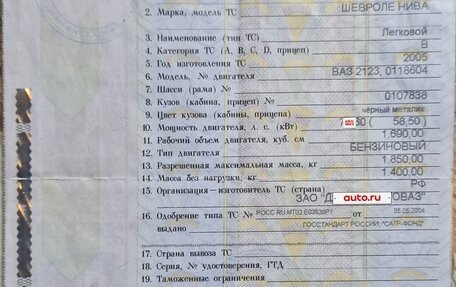 ШЕВРОЛЕ НИВА
2. Марка, модель ТС
3. Наименование (тип ТС) Легковой
4. Категория ТС (A, B, C, D, прицеп) B
5. Год изготовления ТС 2005
6. Модель, № двигателя ВАЗ 2123, 0118604
7. Шасси (рама) №
8. Кузов (кабина, прицеп) № 0107838
9. Цвет кузова (кабины, прицепа) чёрный металик
10. Мощность двигателя, л. с. (кВт) ( 58,50 )
11. Рабочий объем двигателя, куб. см 1.690,00
12. Тип двигателя БЕНЗИНОВЫЙ
13. Разрешенная максимальная масса, кг 1.850,00
14. Масса без нагрузки, кг 1 400,00
15. Организация—изготовитель ТС (страна) РФ
ЗАО "Д auto.ru ОВАЗ"
16. Одобрение типа ТС № РОСС RU.MT02.E03638P1 от 05.05.2004
выдано ГОССТАНДАРТ РОССИИ, "САТР-ФОНД"
17. Страна вывоза ТС
18. Серия, № удостоверения, ГТД
19. Таможенные ограничения